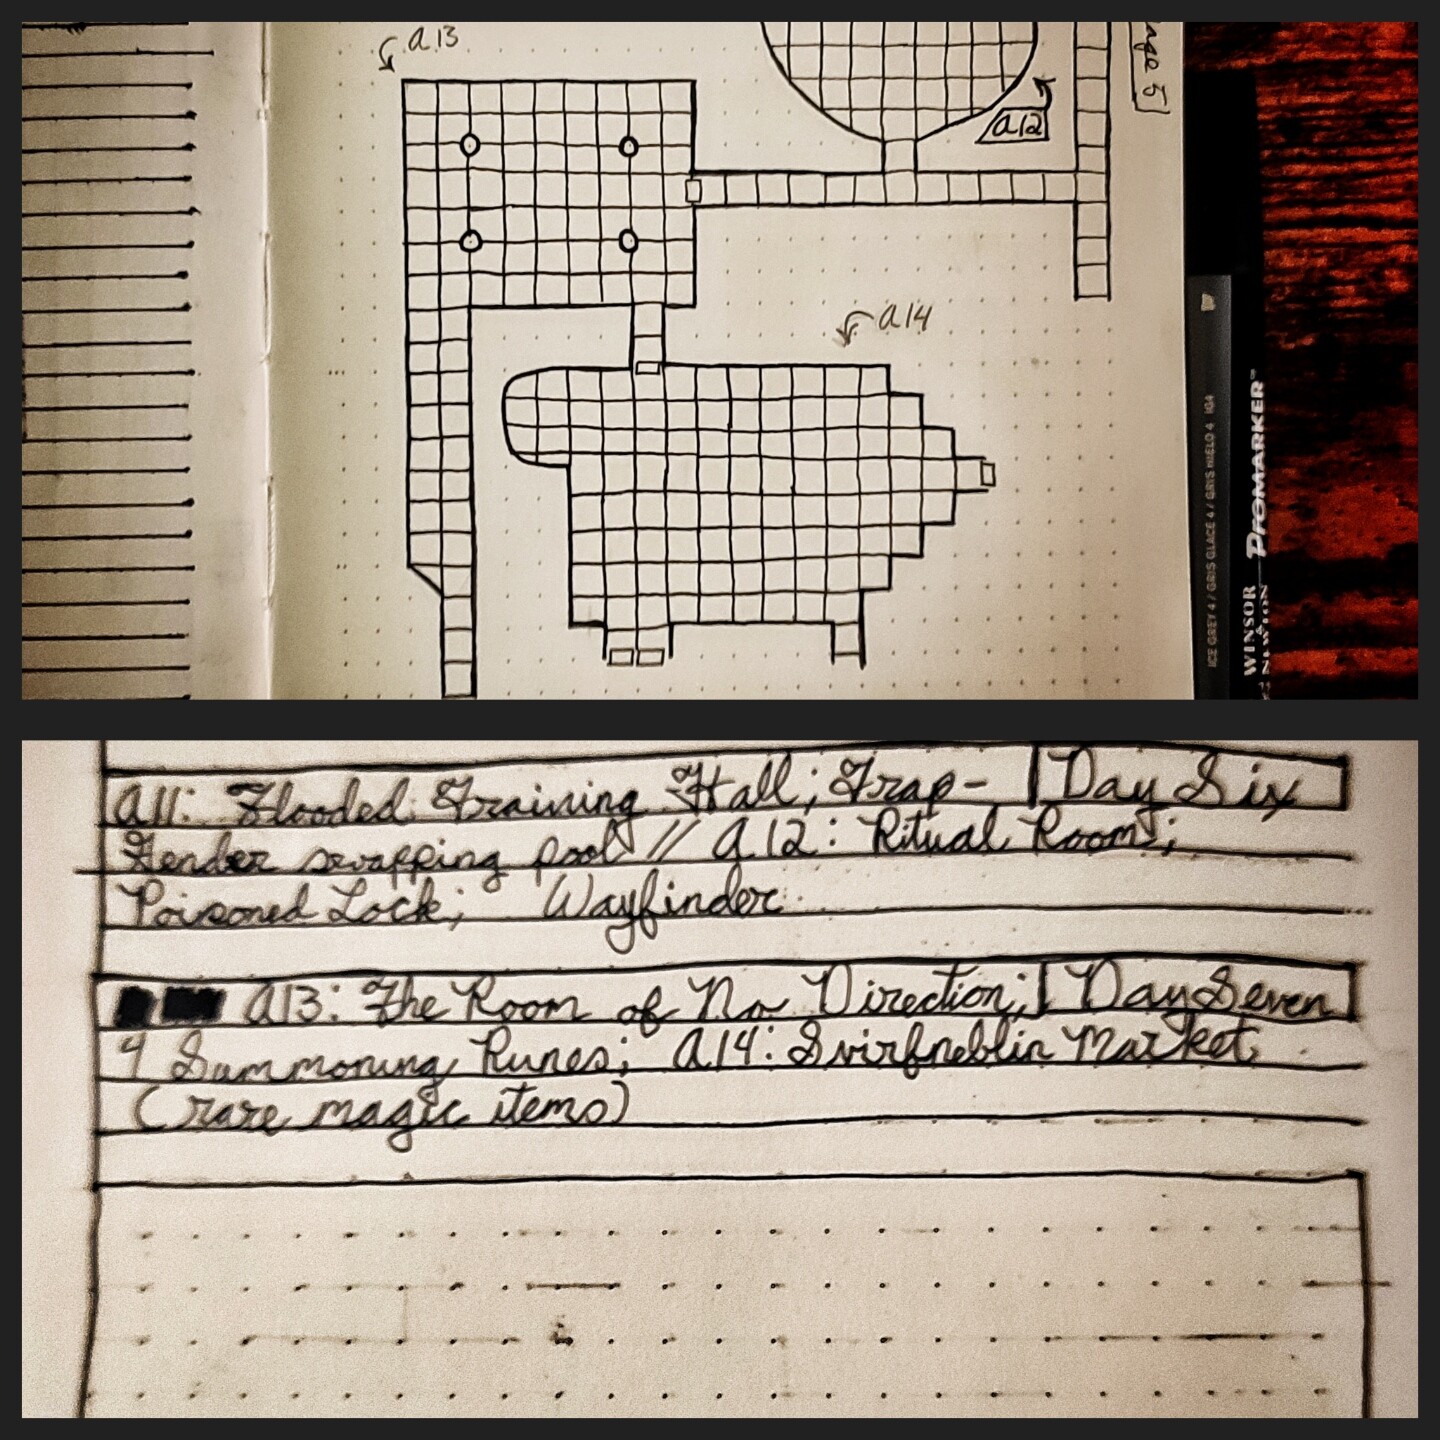 a13
nge 5
a12
a14
ICE GREY 4 / GRIS GLACE 4 / GRIS HIELO 4 IG4
WINSOR & NEWTON ProMARKER™
A11: Flooded Training Hall; Trap- Day Six
Gender swapping pool // A12: Ritual Room;
Poisoned Lock; Wayfinder
A13: The Room of No Direction; Day Seven
4 Summoning Runes; A14: Svirfneblin Market
(rare magic items)